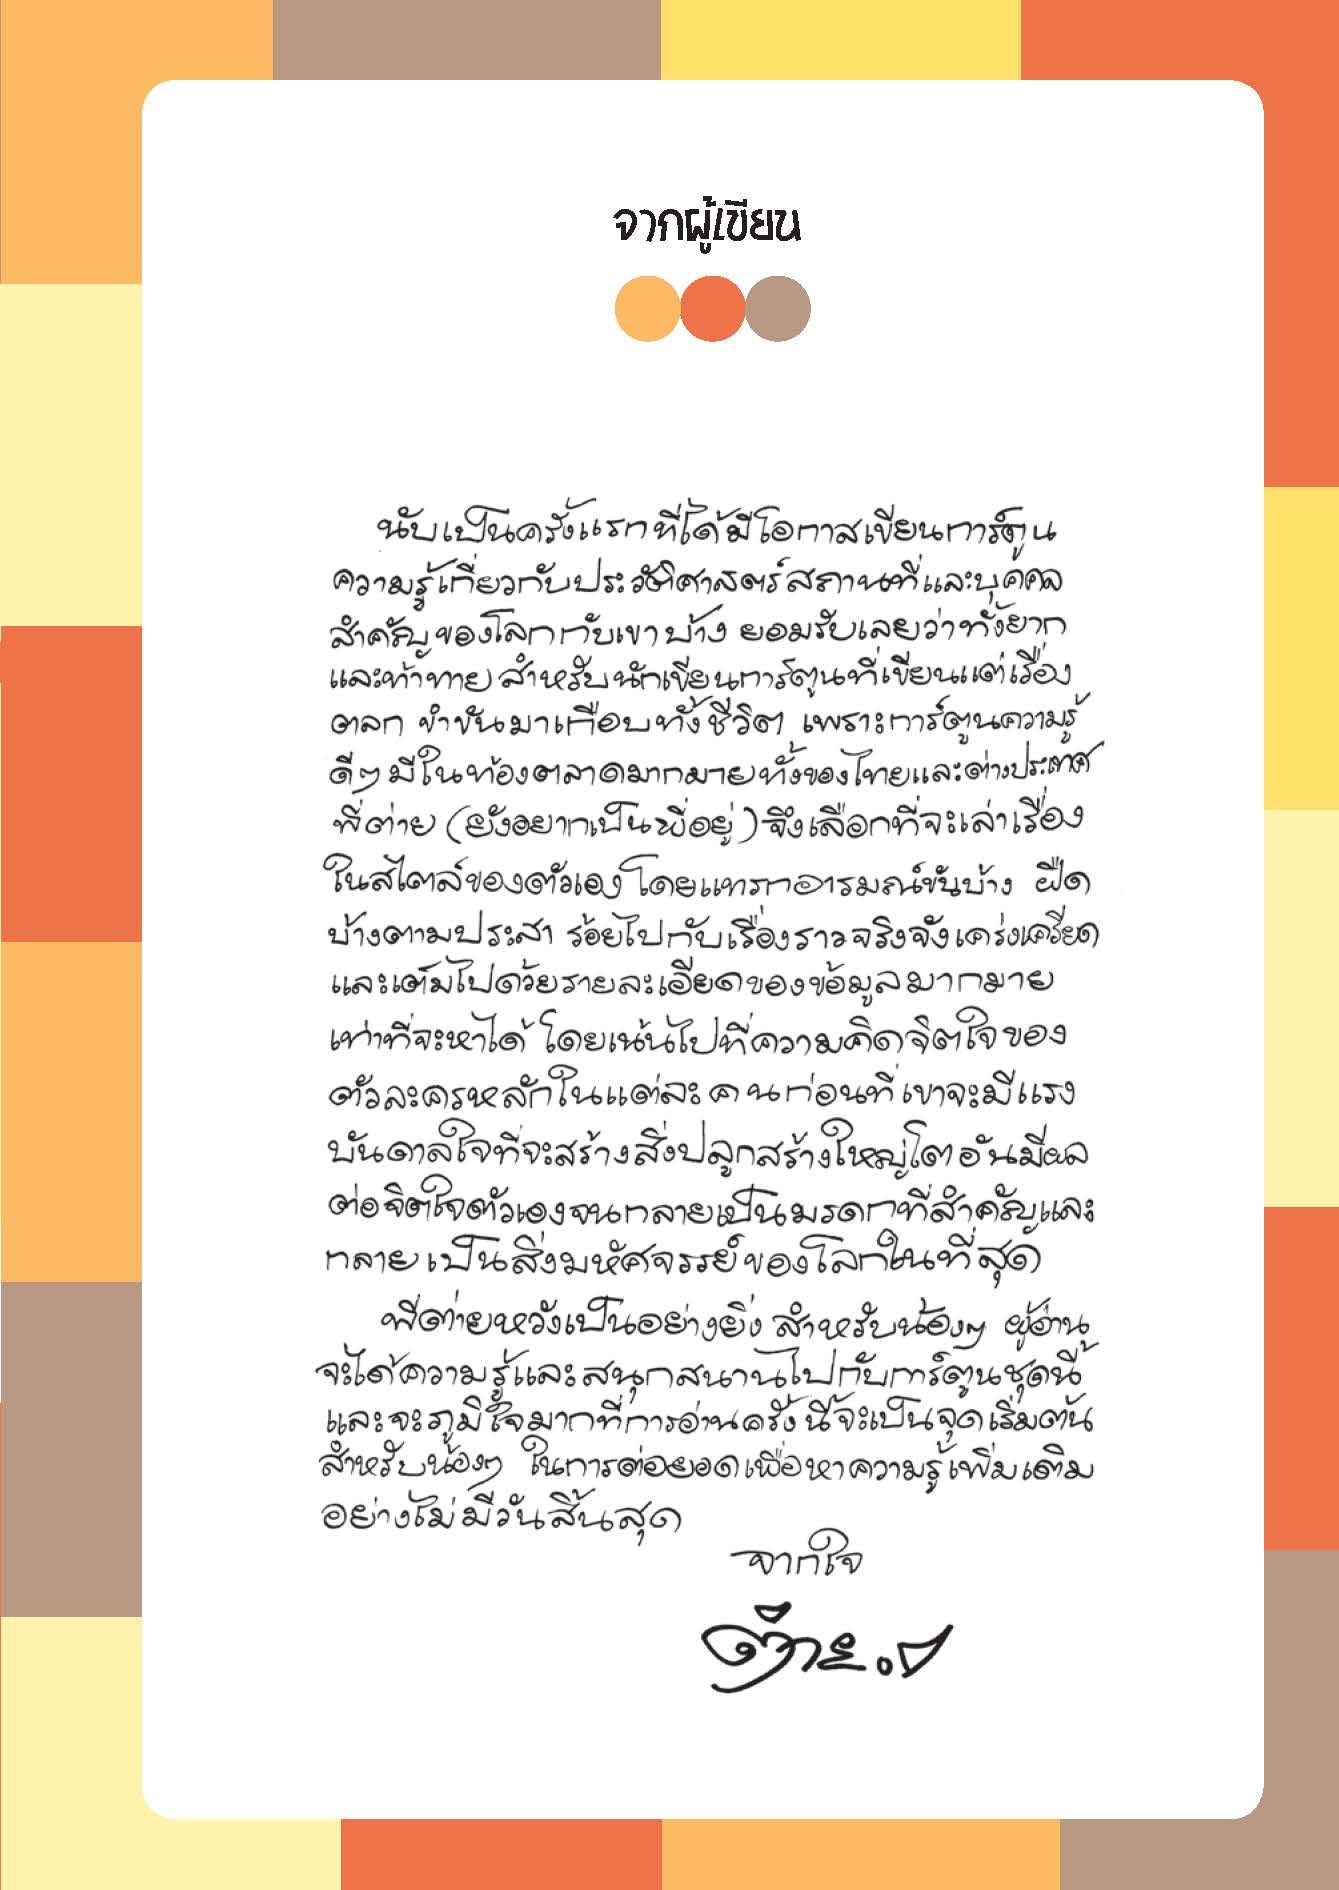 จากผู้เขียน
นับเป็นครั้งแรกที่ได้มีโอกาสเขียนการ์ตูน
ความรู้เกี่ยวกับประวัติศาสตร์สถานที่และบุคคล
สำคัญของโลกกับเขาบ้าง ยอมรับเลยว่าทั้งยาก
และท้าทาย สำหรับนักเขียนการ์ตูนที่เขียนแต่เรื่อง
ตลก ขำขันมาเกือบทั้งชีวิต เพราะการ์ตูนความรู้
ดีๆ มีในท้องตลาดมากมายทั้งของไทยและต่างประเทศ
พี่ต่าย (ยังอยากเป็นพี่อยู่) จึงเลือกที่จะเล่าเรื่อง
ในสไตล์ของตัวเอง โดยแทรกอารมณ์ขันบ้าง ฝืด
บ้างตามประสา ร้อยไปกับเรื่องราวจริงจังเคร่งเครียด
และเต็มไปด้วยรายละเอียดของข้อมูลมากมาย
เท่าที่จะหาได้ โดยเน้นไปที่ความคิดจิตใจของ
ตัวละครหลักในแต่ละคนก่อนที่เขาจะมีแรง
บันดาลใจที่จะสร้างสิ่งปลูกสร้างใหญ่โตอันมีผล
ต่อจิตใจตัวเองจนกลายเป็นมรดกที่สำคัญและ
กลายเป็นสิ่งมหัศจรรย์ของโลกในที่สุด
พี่ต่ายหวังเป็นอย่างยิ่ง สำหรับน้องๆ ผู้อ่าน
จะได้ความรู้และสนุกสนานไปกับการ์ตูนชุดนี้
และจะภูมิใจมากที่การอ่านครั้งนี้จะเป็นจุดเริ่มต้น
สำหรับน้องๆ ในการต่อยอดเพื่อหาความรู้เพิ่มเติม
อย่างไม่มีวันสิ้นสุด
จากใจ